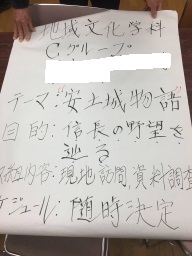 地域文化学科
Cグループ
テーマ:"安土城物語"
目的:信長の野望を
巡る
内容:現地訪問、資料調査
ジュール:随時決定